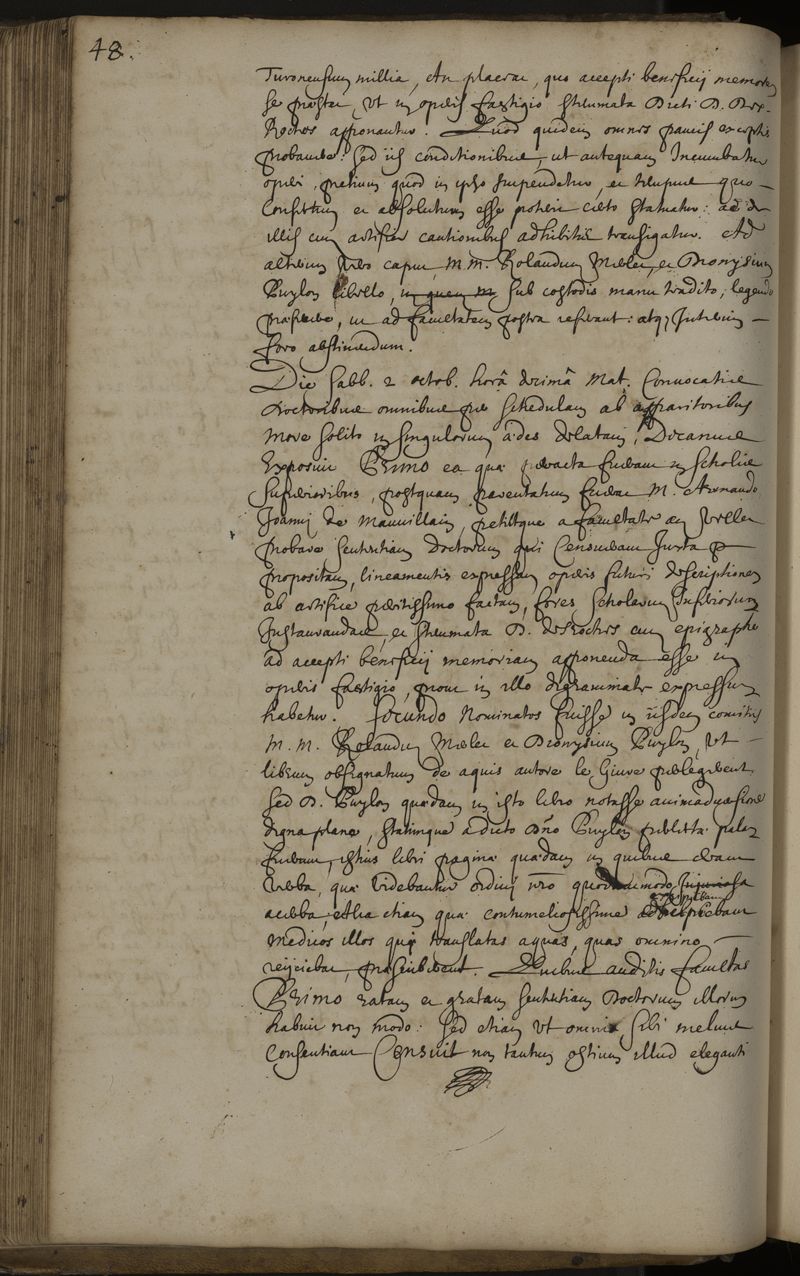 48.
Turonensium millia, An placeat, quo accepti beneficij memorem
se prestet, ut in operis fastigio stemmata Dicti D. Des-
Roches apponantur. Quod quidem omnes paucis exceptis
probarunt: sed iis conditionibus, ut antequam Incumbatur
operi, pretium quod in ipso impendetur, et tempus quo
Confectum et absolutum esse poterit certo statuatur: ac de
illis cum artifice cautionibus adhibitis transigatur. Ad
alterum vero caput M. M. Rolandum Merlet, et Dionysium
Puylon libello, in quem m sub custodis manu tradito, legendo
praesint, ut ad facultatem postea referant: atque Interim
foro abstinendum.
Die Sabb. 2 octob. horâ decimâ Mat. Convocatis
Doctoribus omnibus per schedulam ab apparitoribus
more solito in singulorum ædes delatam, Decanus
Exposuit Primo ea quæ peracta fuerant in Scholis
Superioribus, postquam parentatum fuerat M. Armando
Joanni de Mauvillain, petiitque a facultate an vellet
probare sententiam doctorum qui Censuerant Juxta
propositam, lineamentis expressam operis futuri descriptionem
ab artifice peritissimo factam, fores scholarum Inferiorum
Instaurandas, et stemmata D. desRoches cum epigraphe
ad accepti beneficij memoriam apponenda esse in
operis fastigio, prout in illo diagrammate expressum
habetur. Secundo Nominatos fuisse in iisdem comitiis
M. M. Rolandum Merlet et Dionysium Puylon, ut
librum obsignatum de aquis autore le Givre perlegerent,
sed D. Puylon quædam in isto libro notasse animadversione
digna plane, statimque a dicto Dno Puylon perlecta palam
fuerunt, istius libri paginæ quædam in quibus erant
Verba, quæ videbantur ordini nro quodammodo Injuriosa
acerba, et alia etiam quæ contumeliosissime
medicos illos qui translatas aquas, quas omnino
rejiciebat, præscriberent. Quibus auditis facultas
Primo ratam et gratam sententiam Doctorum illorum
habuit non modo: sed etiam ut omnia sibi melius
Consentiant Censuit non tantum ostium illud eleganti